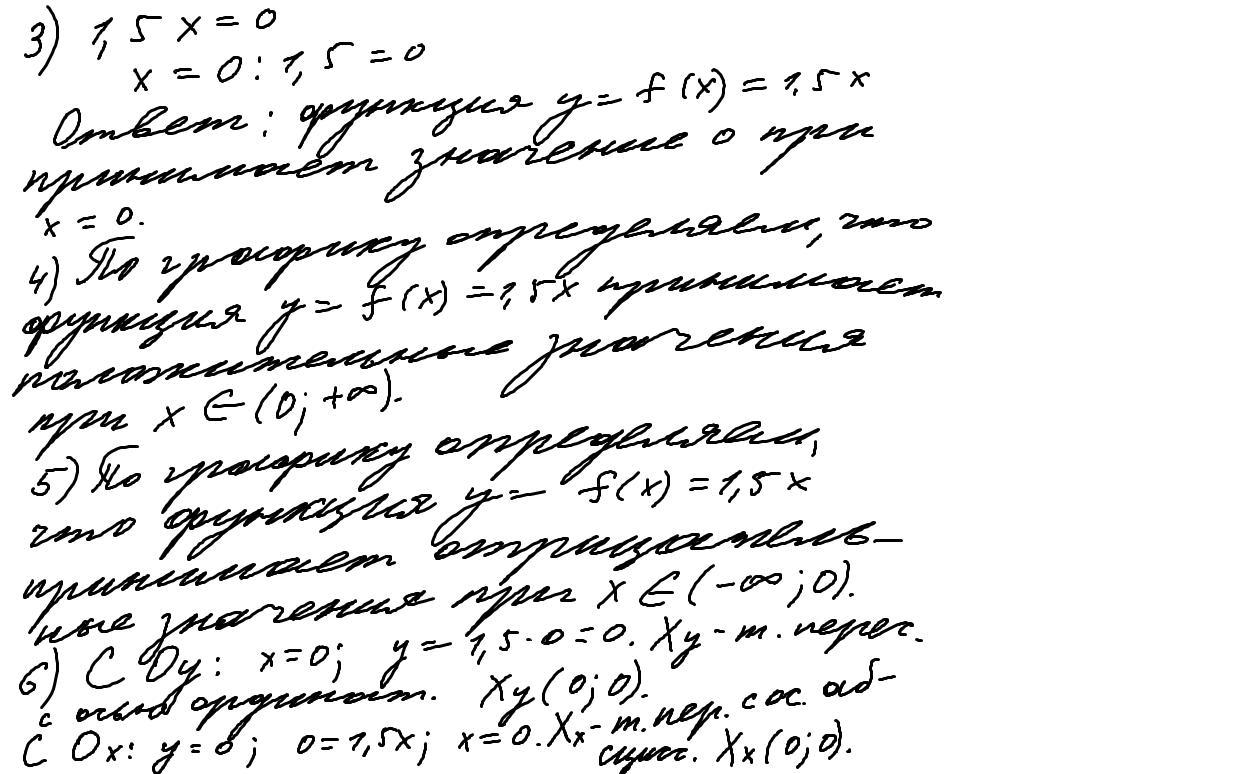 3) 1,5 x = 0
x = 0 : 1,5 = 0
Ответ: функция y = f(x) = 1,5 x
принимает значение 0 при
x = 0.
4) По графику определяем, что
функция y = f(x) = 1,5x принимает
положительные значения
при x ∈ (0; +∞).
5) По графику определяем,
что функция y = f(x) = 1,5 x
принимает отрицатель-
ные значения при x ∈ (-∞; 0).
6) С Oy: x=0; y = 1,5·0 = 0. Xy - т. перес.
с осью ординат. Xy (0; 0).
С Ox: y=0; 0=1,5x; x=0. Xx - т. пер. с ос. аб-
сцисс. Xx (0; 0).